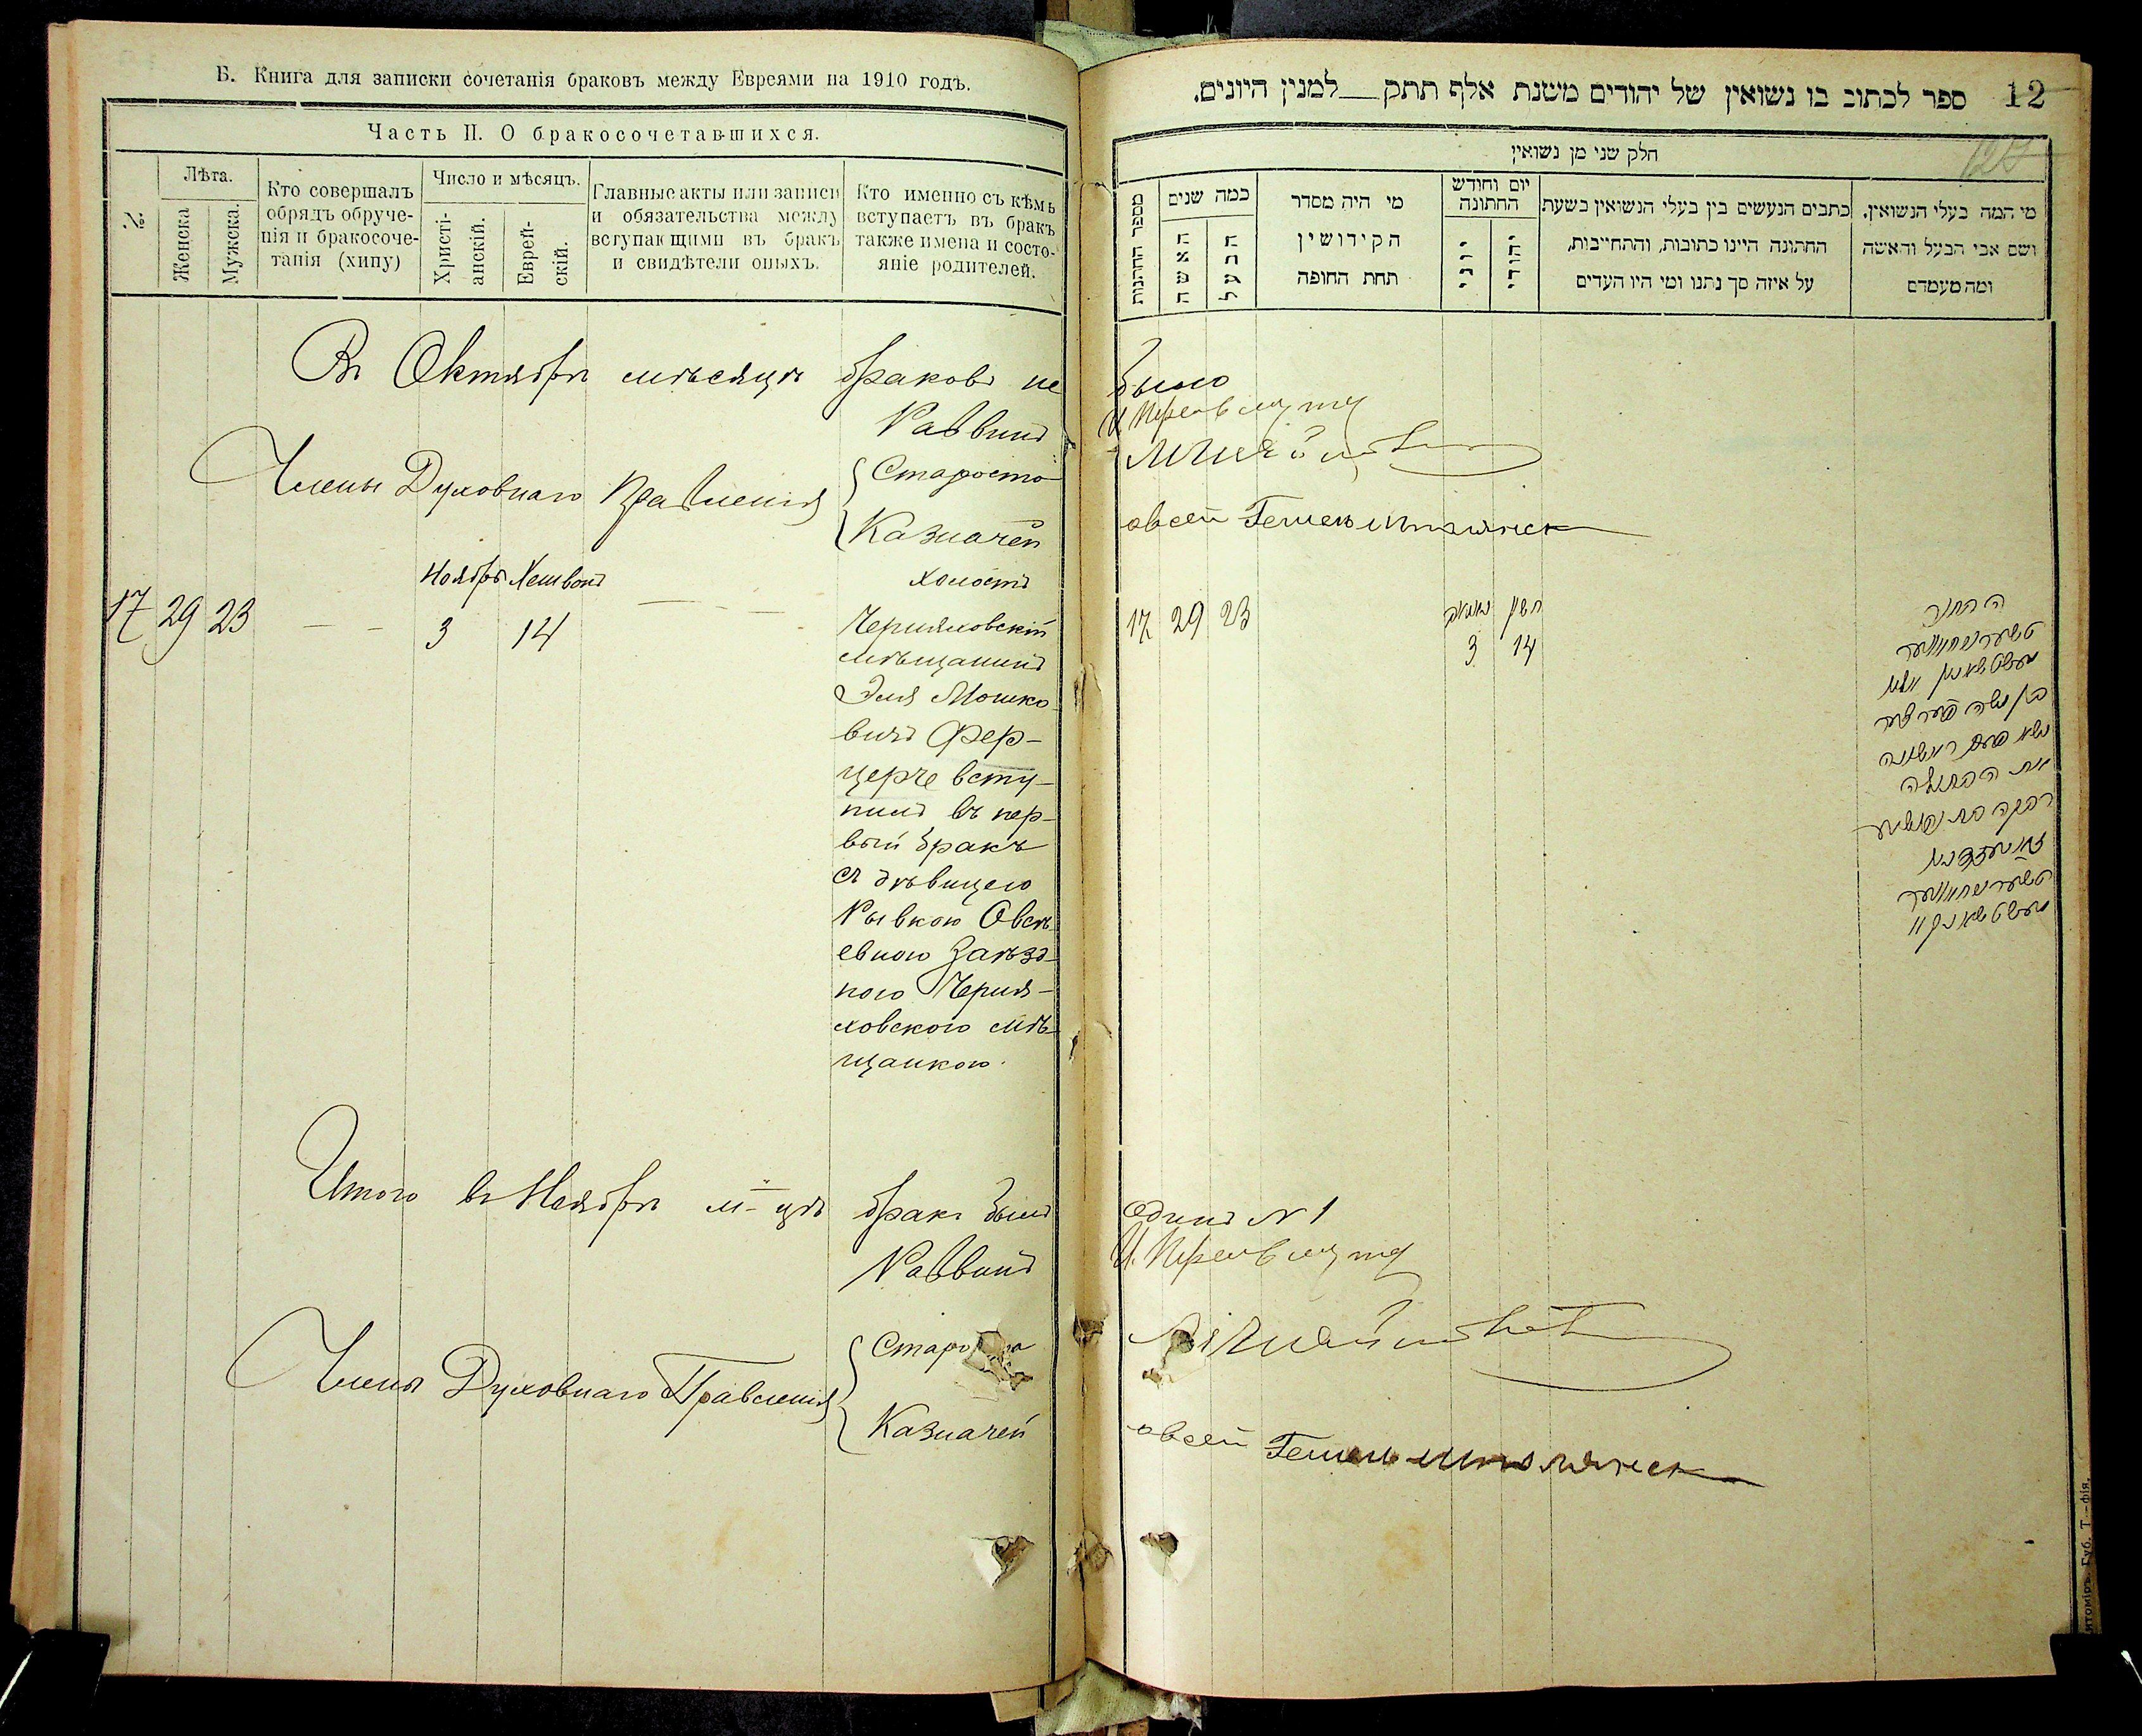 Б. Книга для записки сочетанія браковъ между Евреями на 1910 годъ.
Часть II. О бракосочетавшихся.
№
Лѣта.
Женска
Мужска.
Кто совершалъ
обрядъ обруче-
нія и бракосоче-
танія (хипу)
Число и мѣсяцъ.
Христі-
анскій.
Еврей-
скій.
Главные акты или записи
и обязательства между
вступающими въ бракъ
и свидѣтели оныхъ.
Кто именно съ кѣмъ
вступаетъ въ бракъ
также имена и состо-
яніе родителей.
Въ Октябрѣ мѣсяцѣ браковъ не
Раввинъ
Члены Духовнаго Правленія
Староста
Казначей
Ноябрь Хешванъ
холостъ
17 29 23 — — 3 14
Черняховскій
мѣщанинъ
Эля Мошко-
вичъ Фер-
церче всту-
пилъ въ пер-
вый бракъ
съ дѣвицею
Рывкою Овсѣ-
евною Заѣзд-
ною Черня-
ховскою мѣ-
щанкою.
Итого въ Ноябрѣ м-цѣ бракъ былъ
Раввинъ
Члены Духовнаго Правленія
Староста
Казначей
12
ספר לכתוב בו נשואין של יהודים משנת אלף תתק__למנין היונים.
חלק שני מן נשואין
מספר החתונות
כמה שנים
האשה
הבעל
מי היה מסדר
הקידושין
תחת החופה
יום וחודש
החתונה
יוני
יהודי
כתבים הנעשים בין בעלי הנשואין בשעת
החתונה היינו כתובות, והתחייבות,
על איזה סך נתנו ומי היו העדים
מי המה בעלי הנשואין.
ושם אבי הבעל והאשה
ומה מעמדם
было
Овсей Гешел
17 29 23
חשון
3 14
הבחור
בן משה
נשא פעם ראשונה
את הבתולה
רבקה בת
одинъ № 1
Овсей Гешел